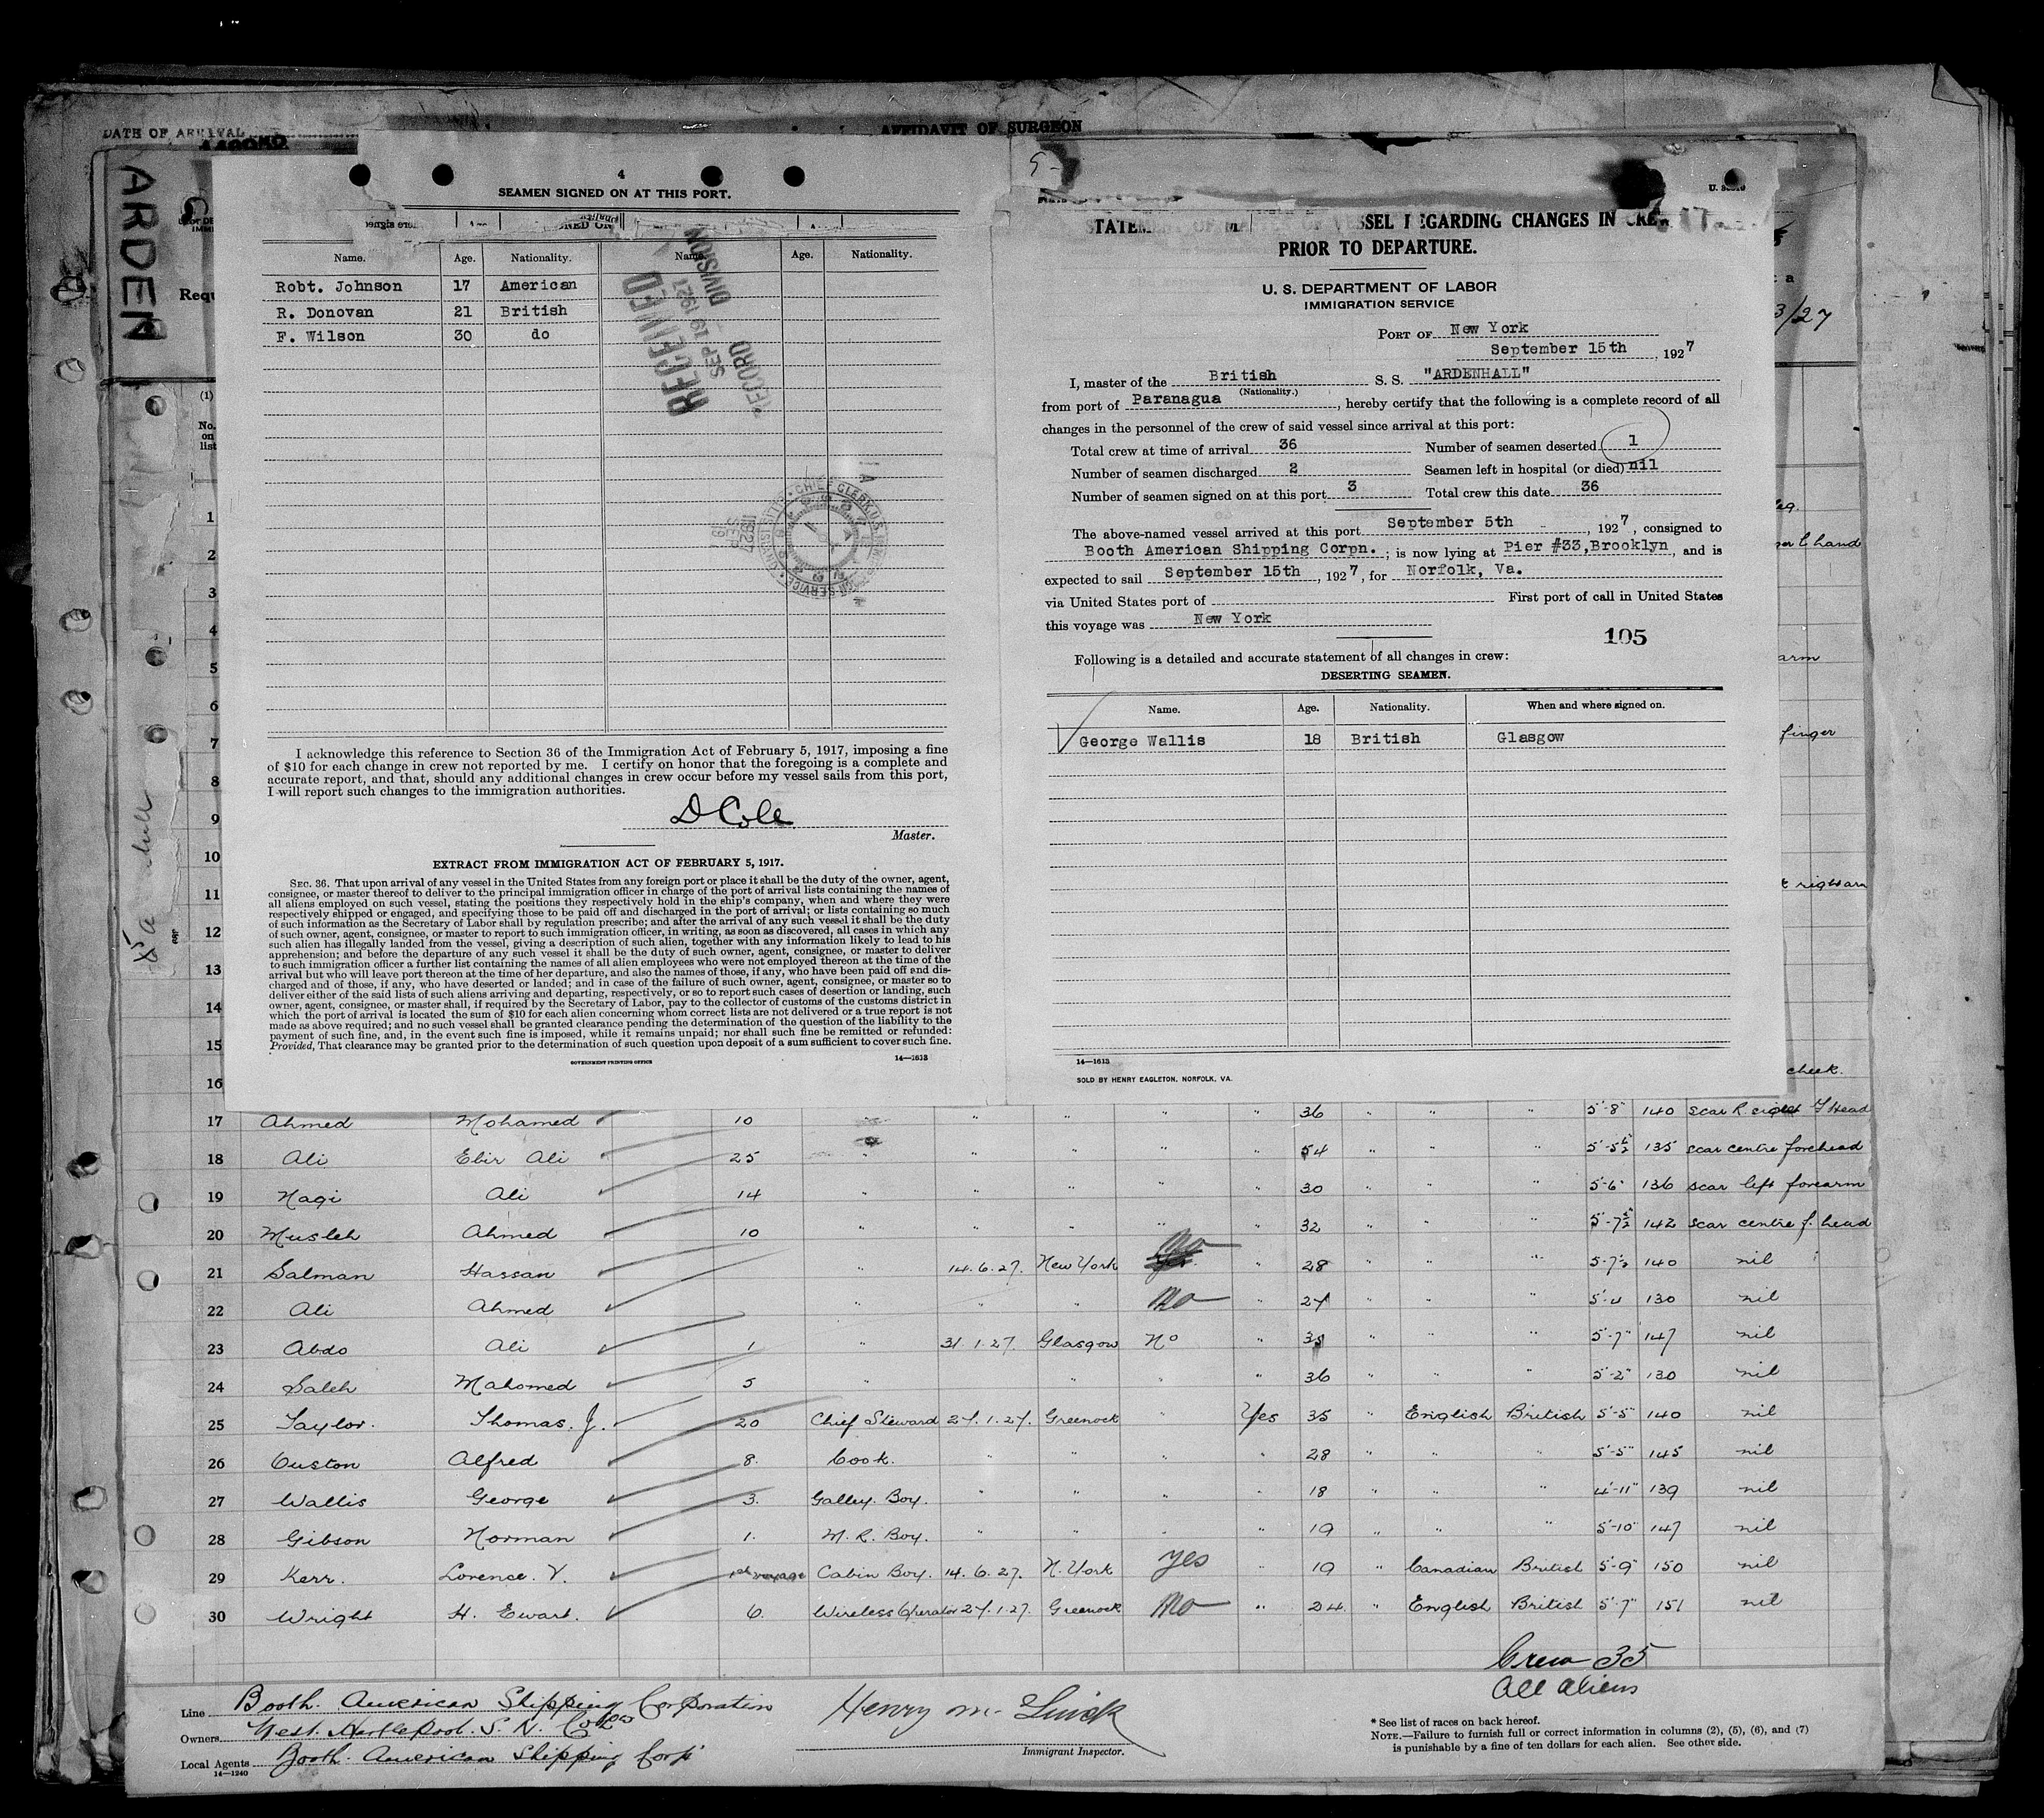 DATE OF ARRIVAL
AFFIDAVIT OF SURGEON
ARDEN
4
SEAMEN SIGNED ON AT THIS PORT.
Name. Age. Nationality. Name. Age. Nationality.
Robt. Johnson 17 American
R. Donovan 21 British
F. Wilson 30 do
RECEIVED
SEP 19 1927
RECORD DIVISION
I acknowledge this reference to Section 36 of the Immigration Act of February 5, 1917, imposing a fine
of $10 for each change in crew not reported by me. I certify on honor that the foregoing is a complete and
accurate report, and that, should any additional changes in crew occur before my vessel sails from this port,
I will report such changes to the immigration authorities.
D Cole
Master.
EXTRACT FROM IMMIGRATION ACT OF FEBRUARY 5, 1917.
SEC. 36. That upon arrival of any vessel in the United States from any foreign port or place it shall be the duty of the owner, agent,
consignee, or master thereof to deliver to the principal immigration officer in charge of the port of arrival lists containing the names of
all aliens employed on such vessel, stating the positions they respectively hold in the ship's company, when and where they were
respectively shipped or engaged, and specifying those to be paid off and discharged in the port of arrival; or lists containing so much
of such information as the Secretary of Labor shall by regulation prescribe; and after the arrival of any such vessel it shall be the duty
of such owner, agent, consignee, or master to report to such immigration officer, in writing, as soon as discovered, all cases in which any
such alien has illegally landed from the vessel, giving a description of such alien, together with any information likely to lead to his
apprehension; and before the departure of any such vessel it shall be the duty of such owner, agent, consignee, or master to deliver
to such immigration officer a further list containing the names of all alien employees who were not employed thereon at the time of the
arrival but who will leave port thereon at the time of her departure, and also the names of those, if any, who have been paid off and dis-
charged and of those, if any, who have deserted or landed; and in case of the failure of such owner, agent, consignee, or master so to
deliver either of the said lists of such aliens arriving and departing, respectively, or so to report such cases of desertion or landing, such
owner, agent, consignee, or master shall, if required by the Secretary of Labor, pay to the collector of customs of the customs district in
which the port of arrival is located the sum of $10 for each alien concerning whom correct lists are not delivered or a true report is not
made as above required; and no such vessel shall be granted clearance pending the determination of the question of the liability to the
payment of such fine, and, in the event such fine is imposed, while it remains unpaid; nor shall such fine be remitted or refunded:
Provided, That clearance may be granted prior to the determination of such question upon deposit of a sum sufficient to cover such fine.
GOVERNMENT PRINTING OFFICE 14—1613
REGARDING CHANGES IN CREW
PRIOR TO DEPARTURE.
U. S. DEPARTMENT OF LABOR
IMMIGRATION SERVICE
PORT OF New York
September 15th, 1927
I, master of the British S. S. "ARDENHALL"
(Nationality.)
from port of Paranagua, hereby certify that the following is a complete record of all
changes in the personnel of the crew of said vessel since arrival at this port:
Total crew at time of arrival 36 Number of seamen deserted 1
Number of seamen discharged 2 Seamen left in hospital (or died) nil
Number of seamen signed on at this port 3 Total crew this date 36
The above-named vessel arrived at this port September 5th, 1927, consigned to
Booth American Shipping Corpn.; is now lying at Pier #33, Brooklyn, and is
expected to sail September 15th, 1927, for Norfolk, Va.
via United States port of First port of call in United States
this voyage was New York
105
Following is a detailed and accurate statement of all changes in crew:
DESERTING SEAMEN.
Name. Age. Nationality. When and where signed on.
George Wallis 18 British Glasgow
14—1613
SOLD BY HENRY EAGLETON, NORFOLK, VA.
(1)
No. on list
3/27
hand
arm
finger
cheek.
1
2
3
4
5
6
7
8
9
10
11
12
13
14
15
16
17 Ahmed Mohamed 10 " " " " " 36 " " " 5'-8" 140 scar R
18 Ali Ebir Ali 25 " " " " " 54 " " " 5'-5½ 135 scar centre forehead
19 Nagi Ali 14 " " " " " 30 " " " 5'-6" 136 scar left forearm
20 Musleh Ahmed 10 " " " " " 32 " " " 5'-7½ 142 scar centre f. head
21 Salman Hassan " 14.6.27. New York No " 28 " " " 5-7½ 140 nil
22 Ali Ahmed " " " No " 27 " " " 130 nil
23 Abdo Ali 1 " 31.1.27. Glasgow No " " " " 5'-7" 147 nil
24 Saleh Mahomed 5 " " " " " 36 " " " 5'-2" 130 nil
25 Taylor. Thomas. J. 20 Chief Steward 27.1.27. Greenock " Yes 35 " English British 5'-5" 140 nil
26 Ouston Alfred 8. Cook. " " " " 28 " " " 5'-5" 145 nil
27 Wallis George 3. Galley. Boy. " " " " 18 " " " 4'-11" 139 nil
28 Gibson Norman 1. M. R. Boy. " " " " 19 " " " 5'-10" 147 nil
29 Kerr. Lorence. V. 1st voyage Cabin Boy. 14.6.27. N. York Yes " 19 " Canadian British 5'-9" 150 nil
30 Wright H. Ewart. 6. Wireless Operator 27.1.27. Greenock No " 24. " English British 5'-7" 151 nil
Crew 35
All Aliens
Line Booth. American Shipping Corporation
Owners West. Hartlepool. S. N. Co
Local Agents Booth. American Shipping Corp
14—1240
Henry M.
Immigrant Inspector.
* See list of races on back hereof.
NOTE.—Failure to furnish full or correct information in columns (2), (5), (6), and (7)
is punishable by a fine of ten dollars for each alien. See other side.